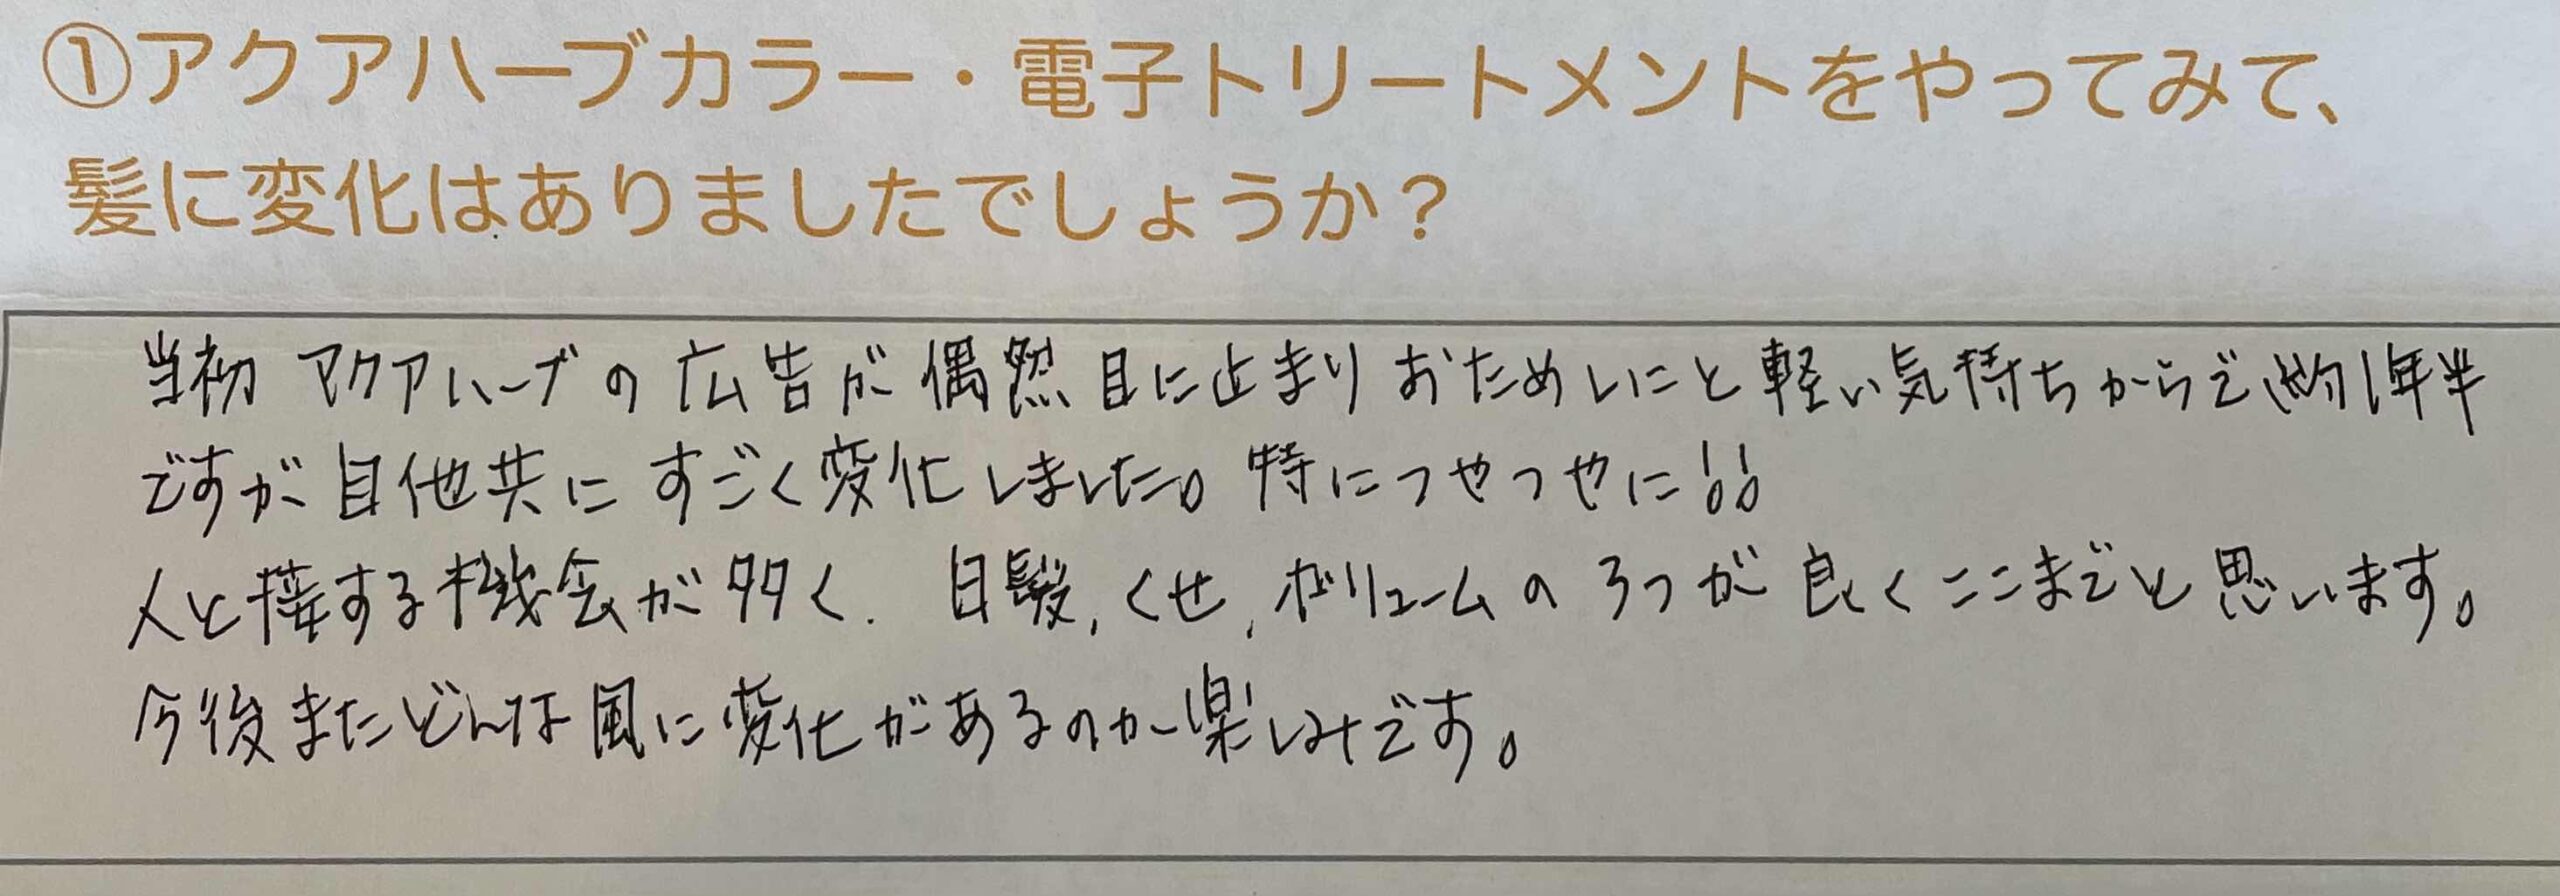 ①アクアハーブカラー・電子トリートメントをやってみて、
髪に変化はありましたでしょうか？
当初 アクアハーブの広告が偶然目に止まりおためしにと軽い気持ちからで、約1年半
ですが自他共にすごく変化しました。特につやつやに!!
人と接する機会が多く、白髪、くせ、ボリュームの3つが良くここまでと思います。
今後またどんな風に変化があるのか楽しみです。